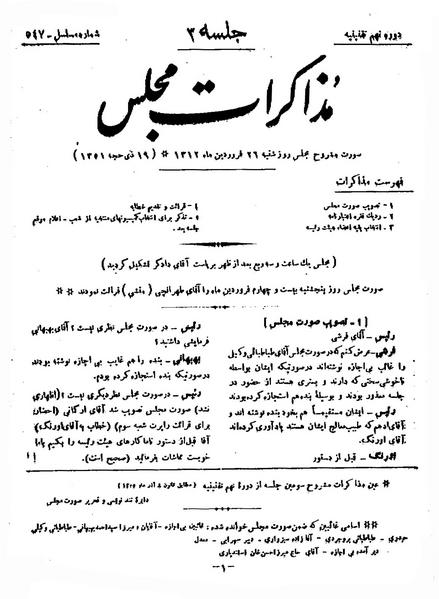 دوره نهم تقنینیه
جلسه ۳
شماره مسلسل - ۵۴۷
مذاکرات مجلس
صورت مشروح مجلس روز شنبه ۲۶ فروردین ماه ۱۳۱۲ * (۱۹ ذی حجه ۱۳۵۱)
فهرست مذاکرات
۱ - تصویب صورت مجلس
۲ - رد یک فقره اعتبارنامه
۳ - انتخاب بقیه اعضاء هیئت رئیسه
۴ - قرائت و تقدیم خطابه
۵ - تذکر برای انتخاب کمیسیونهای منتخبه از شعب - اعلام موقع
جلسه بعد.
(مجلس یک ساعت و سه ربع بعد از ظهر بریاست آقای دادگر تشکیل گردید)
صورت مجلس روز پنجشنبه بیست و چهارم فروردین ماه را آقای طهرانچی (منشی) قرائت نمودند **
[۱ - تصویب صورت مجلس]
رئیس - آقای فرشی
فرشی - عرض کنم که در صورت مجلس آقای طباطبائی وکیل
را غائب بی اجازه نوشته‌اند در صورتیکه ایشان بواسطه
ناخوشی سختی که دارند و بستری هستند از حضور در
جلسه معذور بودند و بوسیله بنده هم استجازه کرده بودند
رئیس - ایشان مستقیماً هم بخود بنده نوشته اند و
آقای ادهم که طبیب معالج ایشان هستند یادآوری کرده‌اند
آقای اورنگ.
اورنگ - قبل از دستور
رئیس - در صورت مجلس نظری نیست؟ آقای بهبهانی
فرمایشی داشتید؟
بهبهانی - بنده را هم غایب بی اجازه نوشته بودند
در صورتیکه بنده استجازه کرده بودم.
رئیس - در صورت مجلس نظر دیگری نیست؟ (اظهاری
نشد) صورت مجلس تصویب شد آقای اردکانی (احضار
برای قرائت راپرت شعبه سوم) (خطاب به آقای اورنگ)
آقا قبل از دستور تا ما کارهای هیئت رئیسه را بکنیم بنا
خوبست مماشات بفرمائید (صحیح است).
* عین مذاکرات مشروح سومین جلسه از دوره نهم تقنینیه (مطابق قانون ۸ آذر ماه ۱۳۰۵)
دایره تند نویسی و تحریر صورت مجلس
** اسامی غائبین که ضمن صورت مجلس خوانده شده: غائبین بی اجازه - آقایان: میرزا سید احمد بهبهانی - طباطبائی وکیلی
طباطبائی بروجردی - آقا زاده سبزواری - دبیر سهرابی - معدل
دیر آمده بی اجازه - آقای حاج میرزا حسن خان اسفندیاری
-۱-